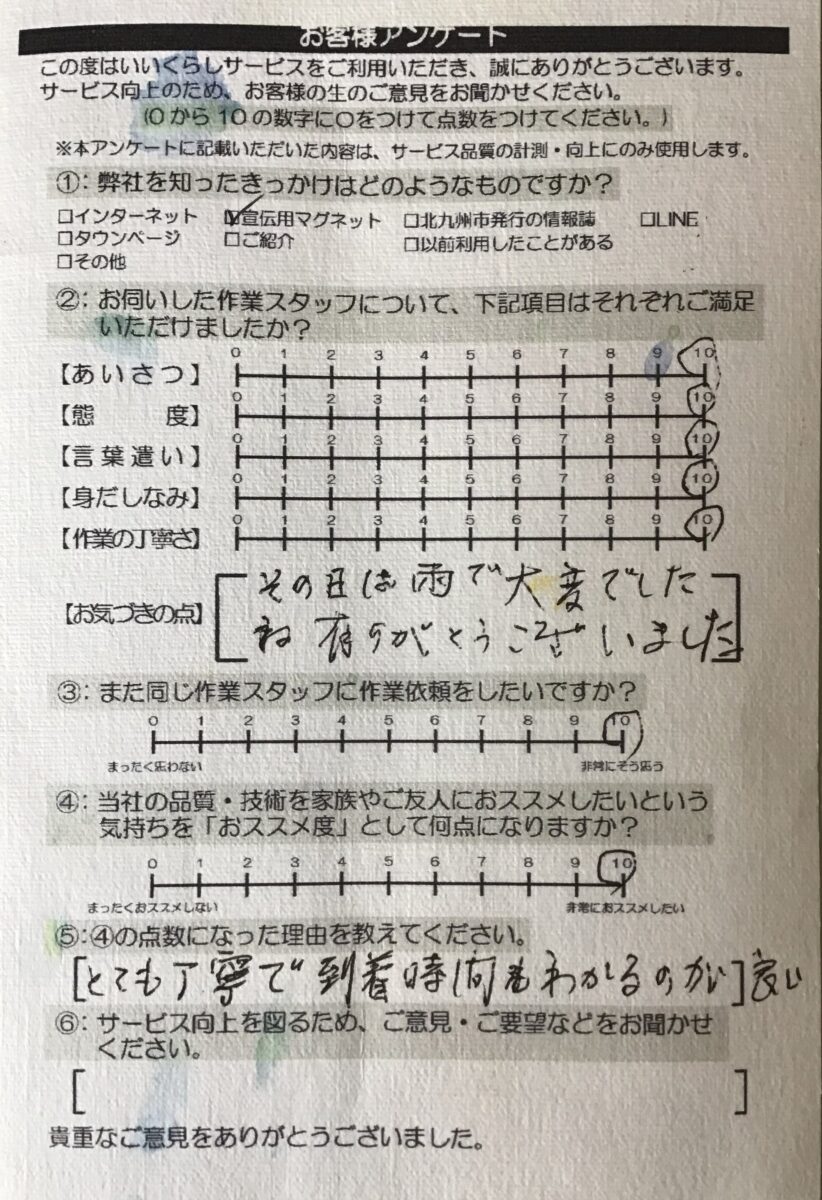 お客様アンケート
この度はいいくらしサービスをご利用いただき、誠にありがとうございます。
サービス向上のため、お客様の生のご意見をお聞かせください。
(0から10の数字に○をつけて点数をつけてください。)
※本アンケートに記載いただいた内容は、サービス品質の計測・向上にのみ使用します。
①:弊社を知ったきっかけはどのようなものですか?
□インターネット ☑宣伝用マグネット □北九州市発行の情報誌 □LINE
□タウンページ □ご紹介 □以前利用したことがある
□その他
②:お伺いした作業スタッフについて、下記項目はそれぞれご満足
いただけましたか?
0 1 2 3 4 5 6 7 8 9 10
【あいさつ】
0 1 2 3 4 5 6 7 8 9 10
【態度】
0 1 2 3 4 5 6 7 8 9 10
【言葉遣い】
0 1 2 3 4 5 6 7 8 9 10
【身だしなみ】
0 1 2 3 4 5 6 7 8 9 10
【作業の丁寧さ】
【お気づきの点】
その日は雨で大変でした
ね 有りがとうございました
③:また同じ作業スタッフに作業依頼をしたいですか?
0 1 2 3 4 5 6 7 8 9 10
まったく思わない 非常にそう思う
④:当社の品質・技術を家族やご友人におススメしたいという
気持ちを「おススメ度」として何点になりますか?
0 1 2 3 4 5 6 7 8 9 10
まったくおススメしない 非常におススメしたい
⑤:④の点数になった理由を教えてください。
[とても丁寧で到着時間もわかるのが]良い
⑥:サービス向上を図るため、ご意見・ご要望などをお聞かせ
ください。
[ ]
貴重なご意見をありがとうございました。